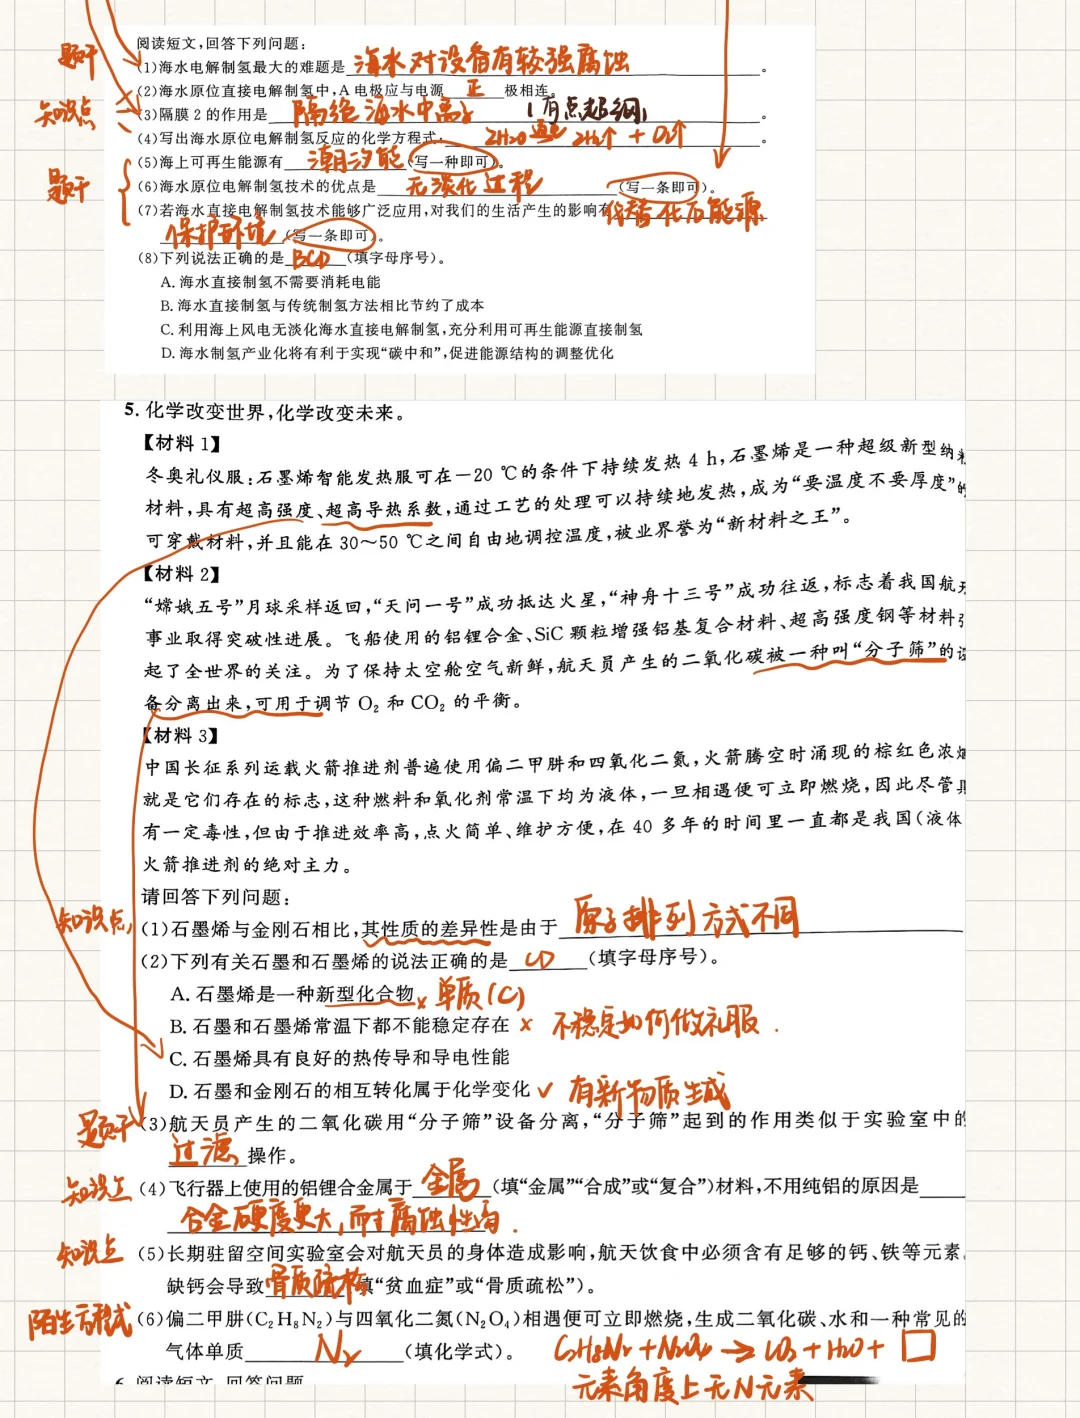 阅读短文,回答下列问题:
题干
(1)海水电解制氢最大的难题是 海水对设备有较强腐蚀 。
(2)海水原位直接电解制氢中,A 电极应与电源 正 极相连。
知识点
(3)隔膜 2 的作用是 隔绝海水中离子 (有点超纲) 。
(4)写出海水原位电解制氢反应的化学方程式: 2H₂O 通电 2H₂↑ + O₂↑ 。
(5)海上可再生能源有 潮汐能 (写一种即可)。
题干
(6)海水原位电解制氢技术的优点是 无淡化过程 (写一条即可)。
(7)若海水直接电解制氢技术能够广泛应用,对我们的生活产生的影响有 代替化石能源
保护环境 (写一条即可)。
(8)下列说法正确的是 BCD (填字母序号)。
A. 海水直接制氢不需要消耗电能
B. 海水直接制氢与传统制氢方法相比节约了成本
C. 利用海上风电无淡化海水直接电解制氢,充分利用可再生能源直接制氢
D. 海水制氢产业化将有利于实现“碳中和”,促进能源结构的调整优化
5. 化学改变世界,化学改变未来。
【材料 1】
冬奥礼仪服:石墨烯智能发热服可在-20 ℃的条件下持续发热 4 h,石墨烯是一种超级新型纳
材料,具有超高强度、超高导热系数,通过工艺的处理可以持续地发热,成为“要温度不要厚度”的
可穿戴材料,并且能在 30~50 ℃之间自由地调控温度,被业界誉为“新材料之王”。
【材料 2】
“嫦娥五号”月球采样返回,“天问一号”成功抵达火星,“神舟十三号”成功往返,标志着我国航
事业取得突破性进展。飞船使用的铝锂合金、SiC 颗粒增强铝基复合材料、超高强度钢等材料
起了全世界的关注。为了保持太空舱空气新鲜,航天员产生的二氧化碳被一种叫“分子筛”的
备分离出来,可用于调节 O₂ 和 CO₂ 的平衡。
【材料 3】
中国长征系列运载火箭推进剂普遍使用偏二甲肼和四氧化二氮,火箭腾空时涌现的棕红色浓
就是它们存在的标志,这种燃料和氧化剂常温下均为液体,一旦相遇便可立即燃烧,因此尽管
有一定毒性,但由于推进效率高,点火简单、维护方便,在 40 多年的时间里一直都是我国(液体
火箭推进剂的绝对主力。
请回答下列问题:
知识点
(1)石墨烯与金刚石相比,其性质的差异性是由于 原子排列方式不同
(2)下列有关石墨和石墨烯的说法正确的是 CD (填字母序号)。
A. 石墨烯是一种新型化合物 × 单质(C)
B. 石墨和石墨烯常温下都不能稳定存在 × 不稳定如何做礼服.
C. 石墨烯具有良好的热传导和导电性能
D. 石墨和金刚石的相互转化属于化学变化 ✓ 有新物质生成
题干
(3)航天员产生的二氧化碳用“分子筛”设备分离,“分子筛”起到的作用类似于实验室中的
过滤 操作。
知识点
(4)飞行器上使用的铝锂合金属于 金属 (填“金属”“合成”或“复合”)材料,不用纯铝的原因是
合金硬度更大,耐腐蚀性高.
知识点
(5)长期驻留空间实验室会对航天员的身体造成影响,航天饮食中必须含有足够的钙、铁等元素
缺钙会导致 骨质疏松 填“贫血症”或“骨质疏松”)。
陌生方程式
(6)偏二甲肼(C₂H₈N₂)与四氧化二氮(N₂O₄)相遇便可立即燃烧,生成二氧化碳、水和一种常见的
气体单质 N₂ (填化学式)。 C₂H₈N₂ + N₂O₄ → CO₂ + H₂O + □
元素角度上无N元素
6 阅读短文 回答问题